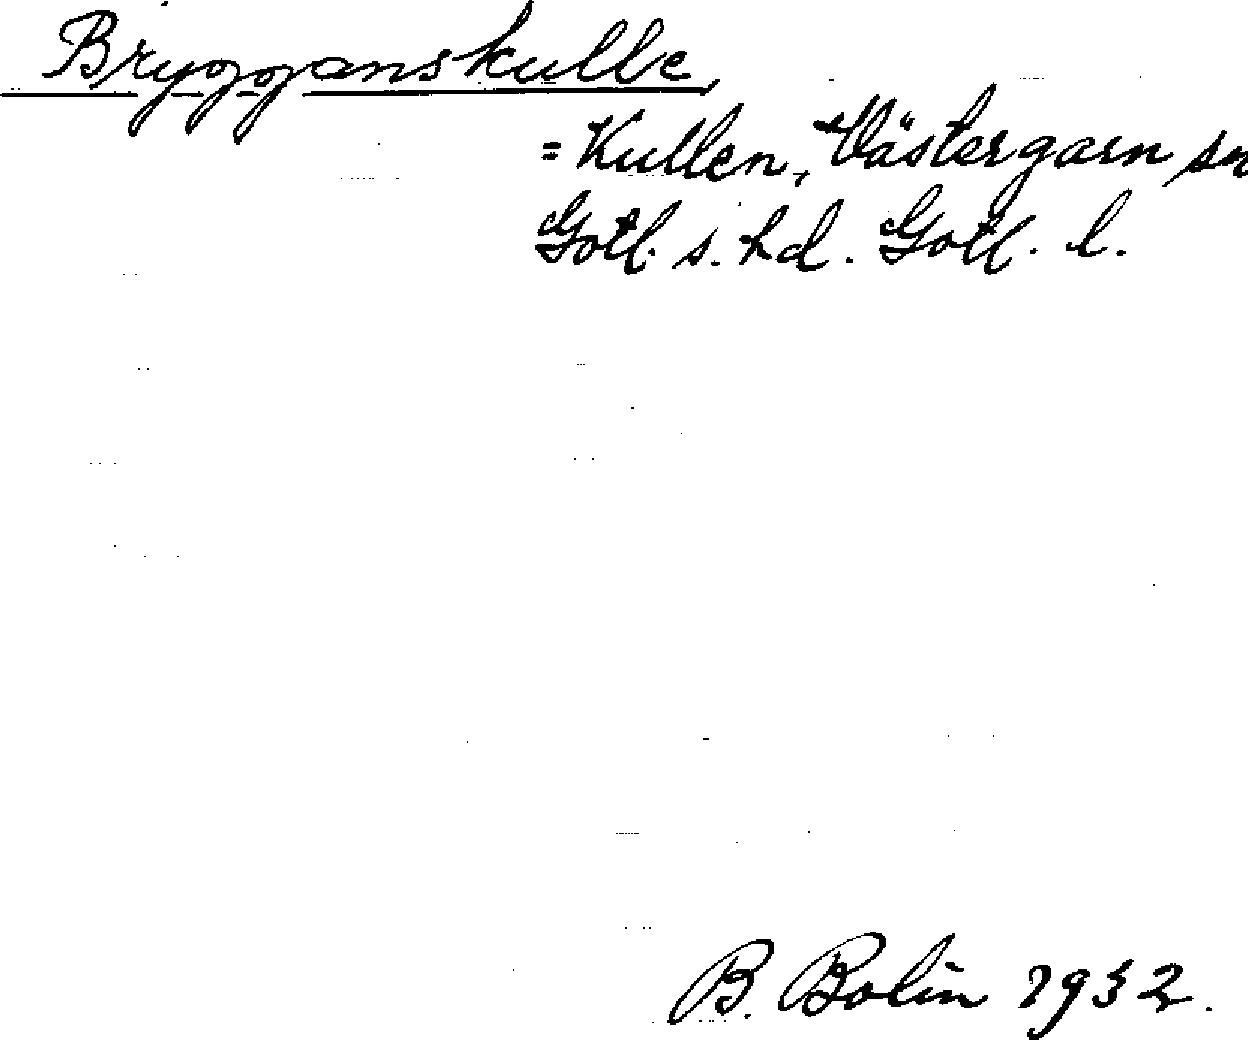 Brygganskulle,
= Kullen, Västergarn sn
Gotl. s. hd. Gotl. l.
B. Bolin 1932.